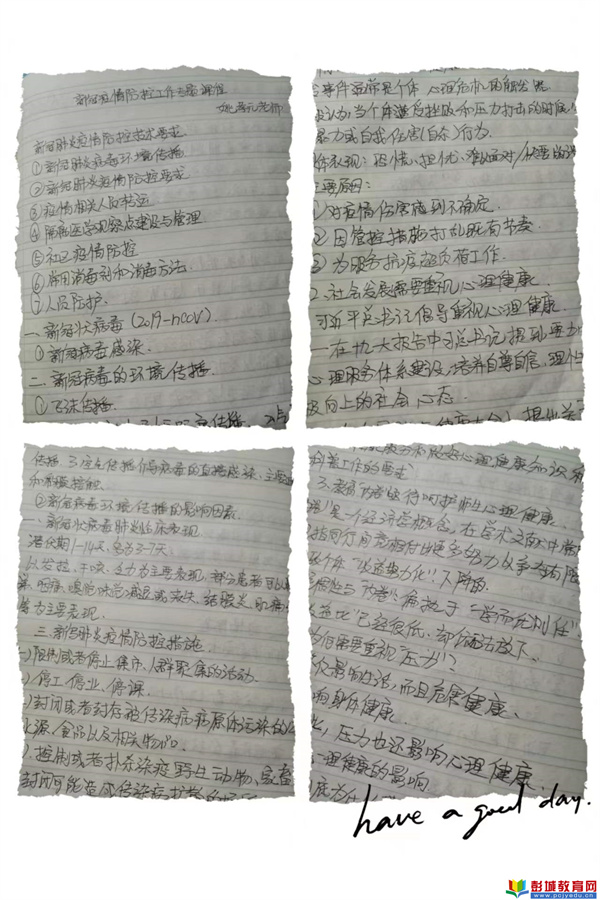 新冠疫情防控工作专题课程
新冠肺炎疫情防控技术要求
①新冠肺炎病毒环境传播
②新冠肺炎疫情防控要求
③疫情相关人员转运
④隔离医学观察点建设与管理
⑤社区疫情防控
⑥常用消毒剂和消毒方法
⑦人员防护
一、新冠状病毒(2019-nCOV)
①新冠病毒感染
二、新冠病毒的环境传播
①飞沫传播
事件通常是个体 心理危机的触发器
当个体遭受挫败和压力打击的时候
暴力或自我伤害(自杀)行为.
表现:恐慌、担忧、难以面对/
主要原因:
①对疫情伤害感到不确定.
②因管控措施打乱既有节奏
③为服务抗疫超负荷工作.
2.社会发展需要重视心理健康.
习近平总书记倡导重视心理健康.
一在九大报告中习总书记提到要加
心理服务体系建设,培养自尊自信,理性
极向上的社会心态.
传播、3.接触传播 病毒的直接感染
和
②新冠病毒环境传播的影响因素.
一、新冠状病毒肺炎临床表现
潜伏期1-14天,多为3-7天.
以发热、干咳、乏力为主要表现,部分患者可以
咽痛、嗅觉味觉减退或丧失、结膜炎、肌痛
为主要表现.
三、新冠肺炎疫情防控措施
限制或者停止集市、人群聚集的活动
停工、停业、停课.
封闭或者封存被传染病病原体污染的
水源、食品以及相关物品
控制或者扑杀染疫野生动物、家畜
封闭可能造成传染病扩散的场所
心理健康知识和
科普工作的要求
师生心理健康.
是一个经济学概念,在学术文献中常
指同行间竞相付出更多努力以争夺有限
个体"收益努力比"下降的
"学而优则仕"
比"已经很低,却依旧放下.
为何需要重视"压力"?
仅影响生活,而且危害健康、
响身体健康
压力也还影响心理健康
心理健康的影响
have a good day.
彭城教育网
www.pcjyedu.cn